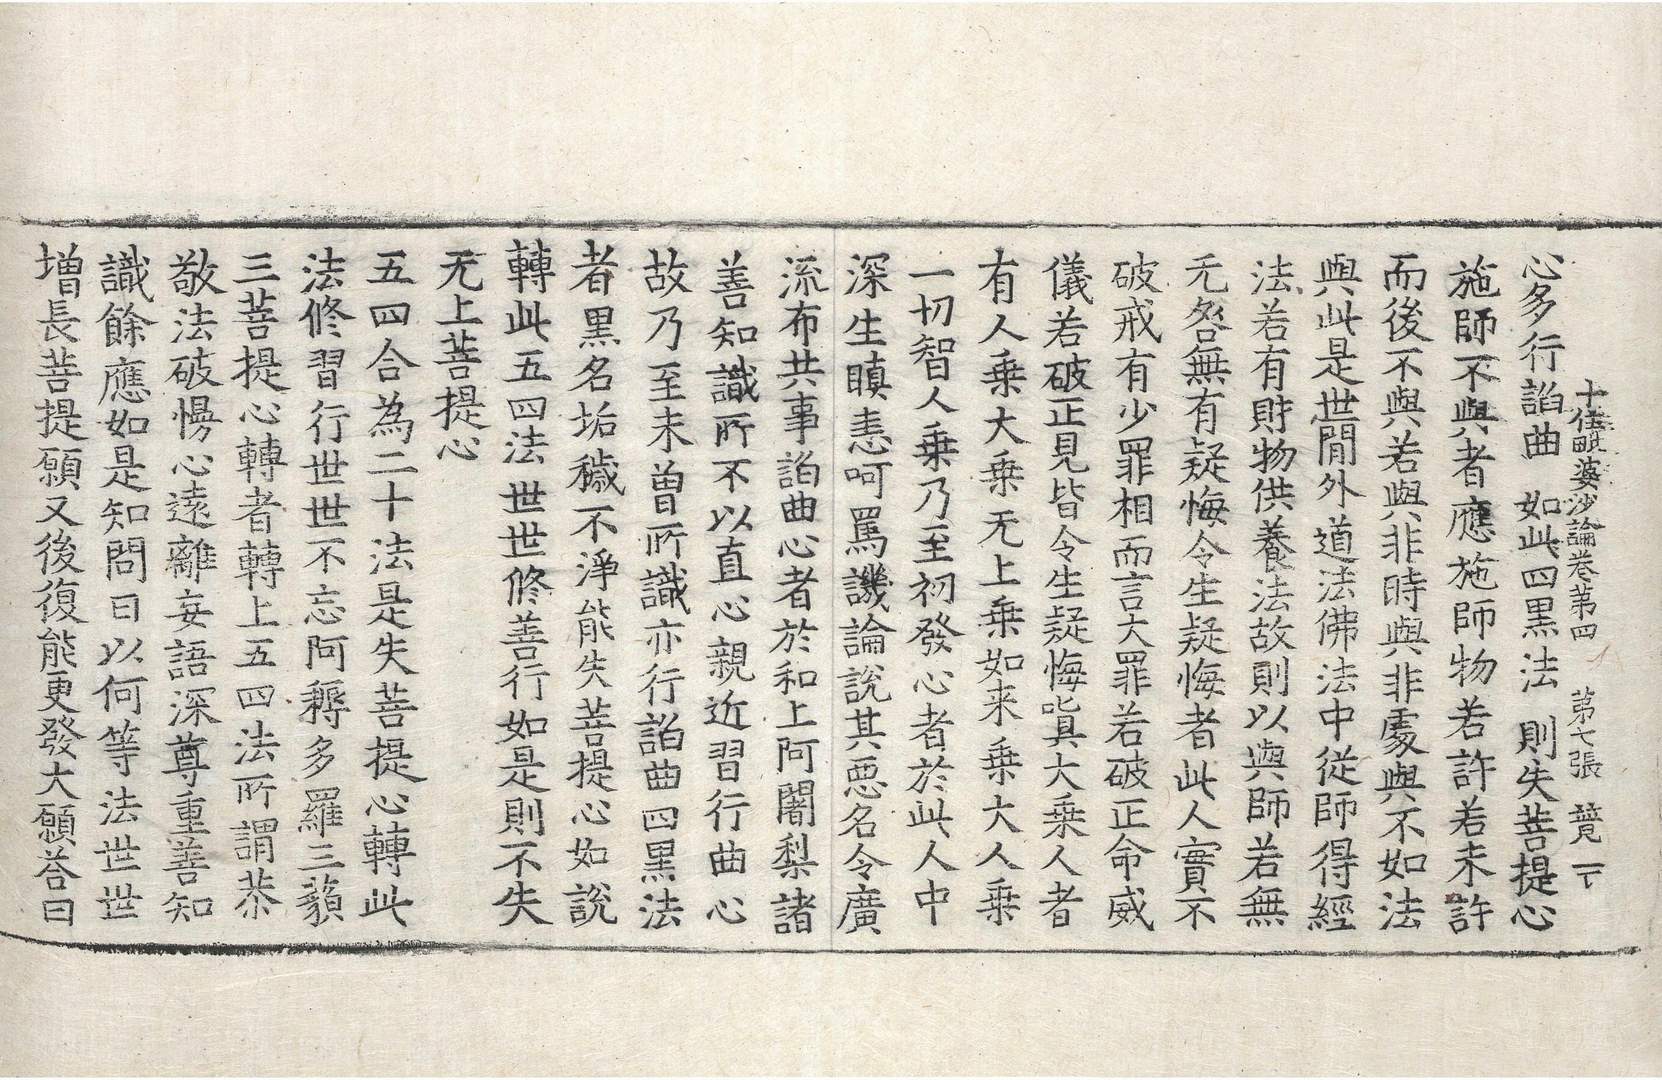 十住毗婆沙論卷第四 第七張 競
心多行諂曲 如此四黑法 則失菩提心
施師不與者應施師物若許若未許
而後不與若與非時與非處與不如法
與此是世閒外道法佛法中從師得經
法若有財物供養法故則以與師若無
无咎無有疑悔令生疑悔者此人實不
破戒有少罪相而言大罪若破正命威
儀若破正見皆令生疑悔嗔大乘人者
有人乘大乘无上乘如来乘大人乘
一切智人乘乃至初發心者於此人中
深生瞋恚呵罵譏論說其惡名令廣
流布共事諂曲心者於和上阿闍梨諸
善知識所不以直心親近習行曲心
故乃至未曾所識亦行諂曲四黑法
者黑名垢穢不淨能失菩提心如說
轉此五四法世世修善行如是則不失
无上菩提心
五四合為二十法是失菩提心轉此
法修習行世世不忘阿耨多羅三藐
三菩提心轉者轉上五四法所謂恭
敬法破慢心遠離妄語深尊重善知
識餘應如是知問曰以何等法世世
增長菩提願又後復能更發大願荅曰